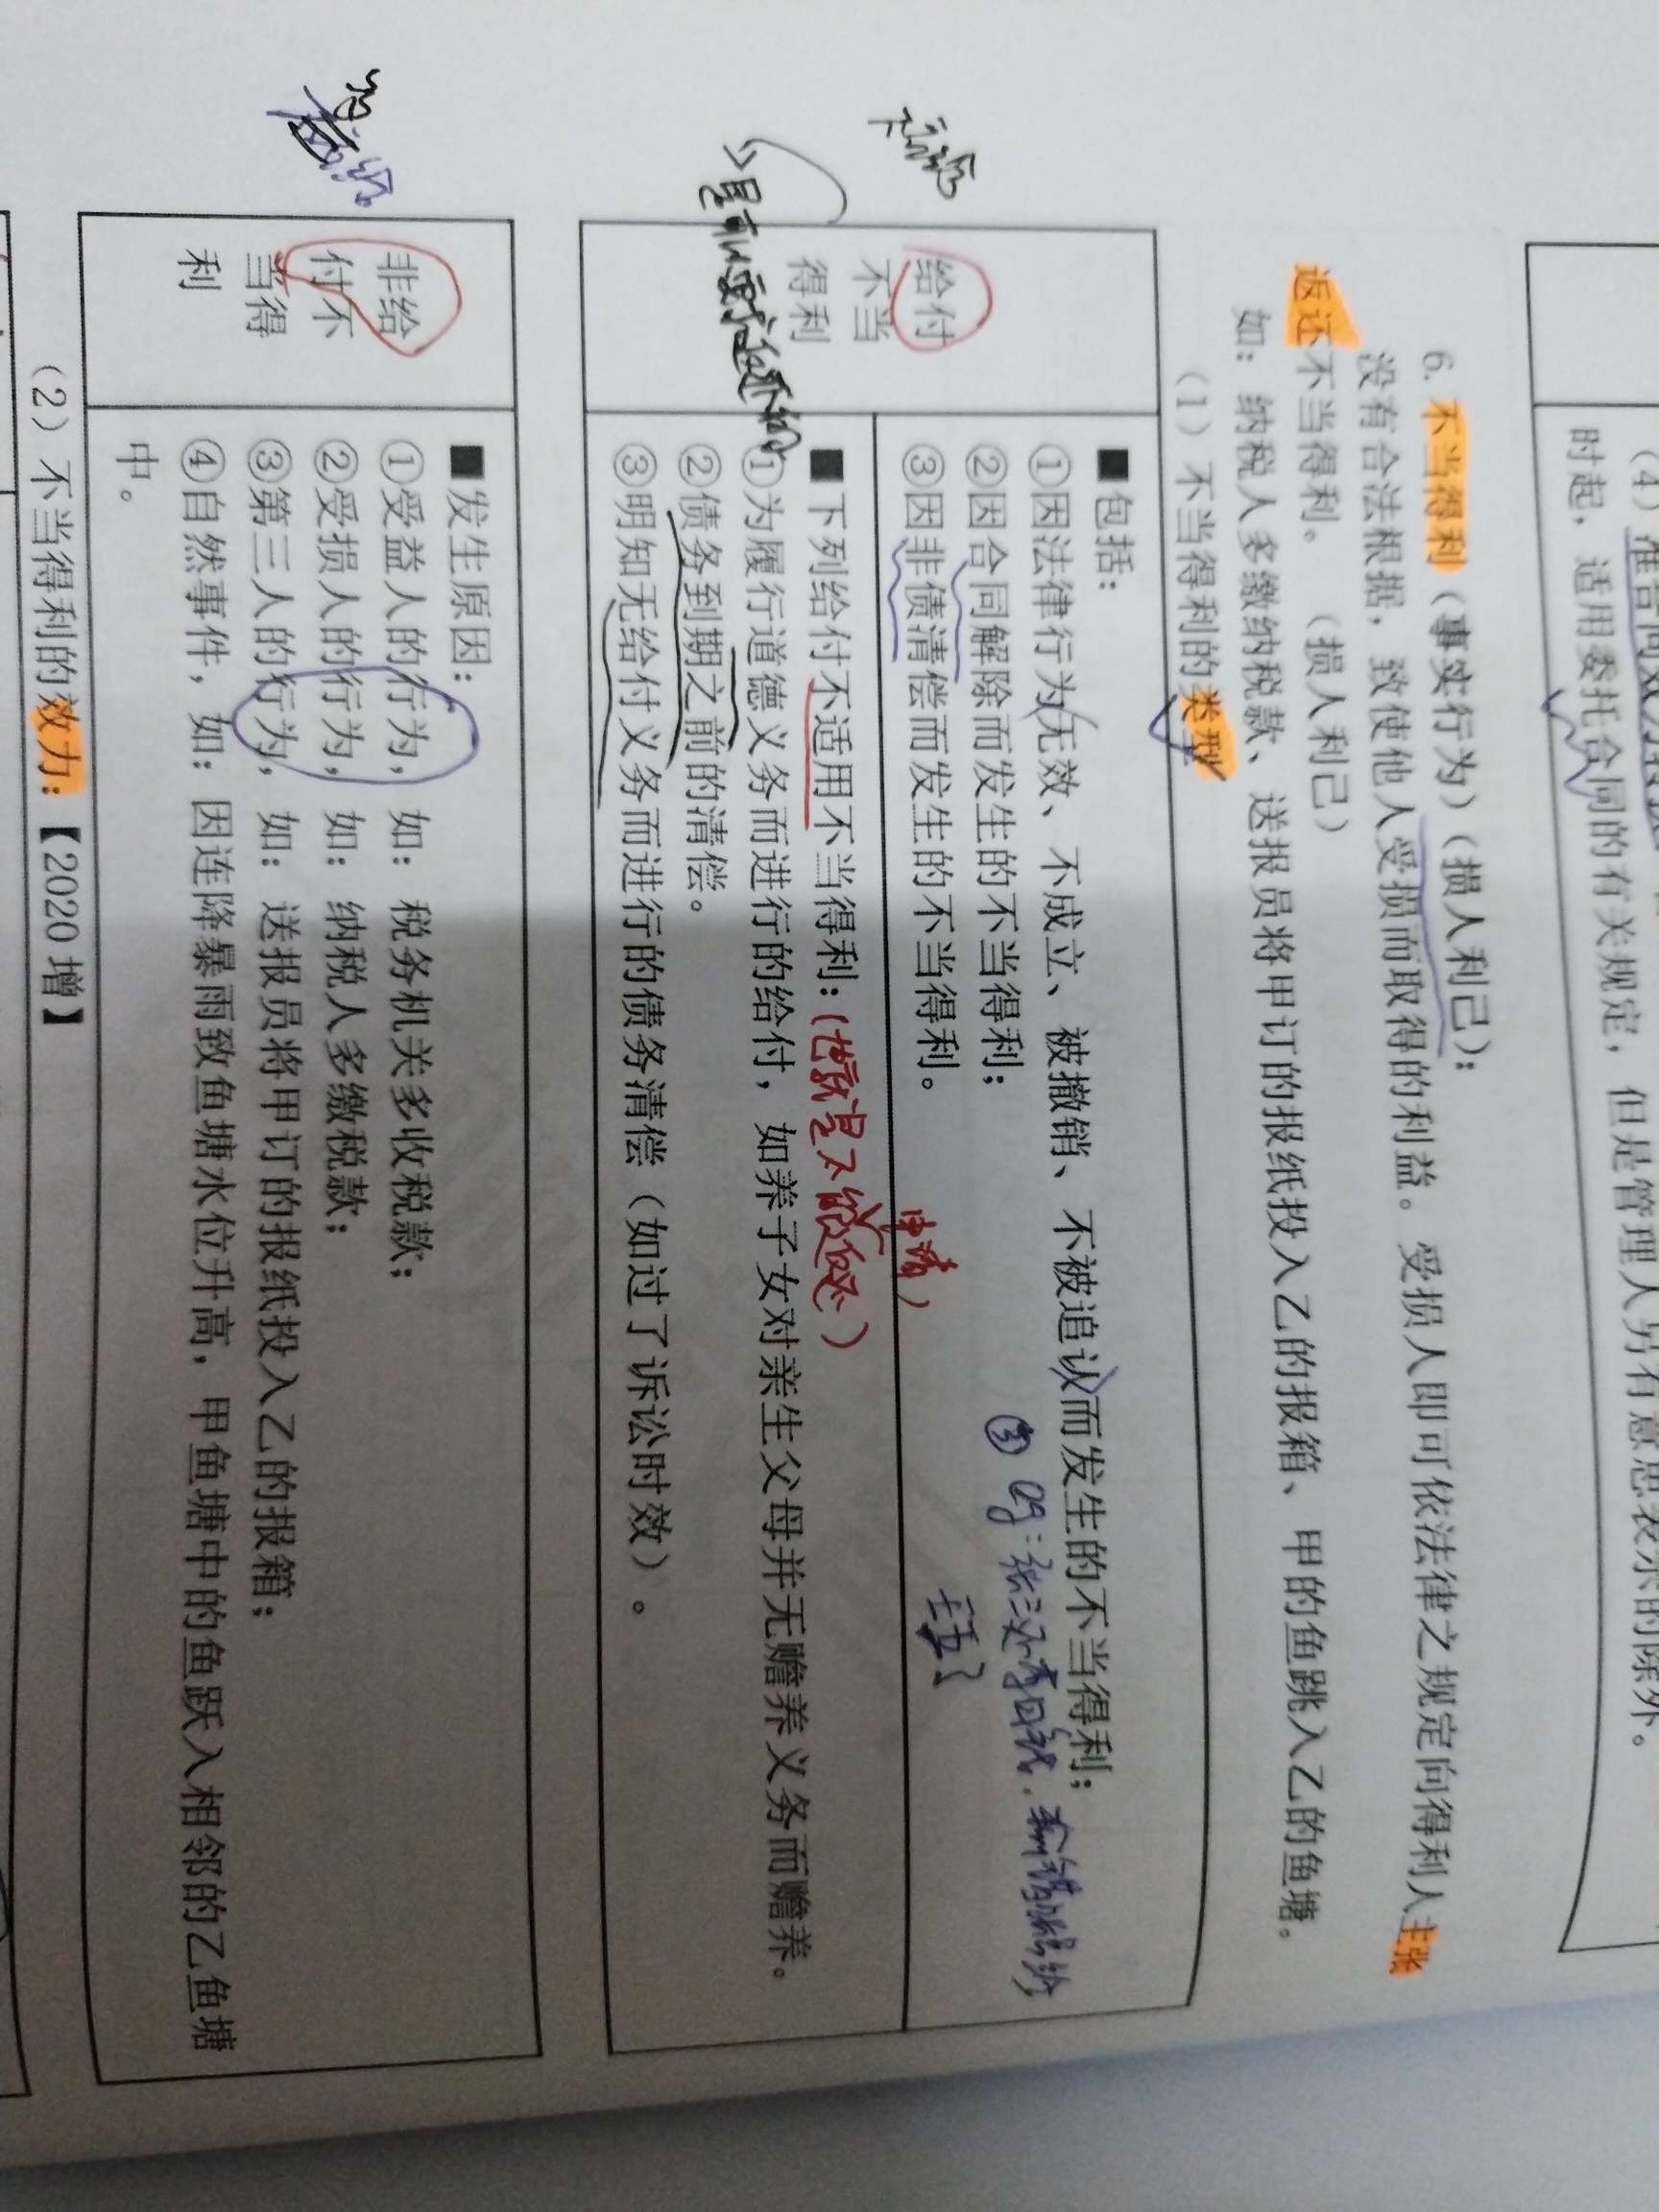 （4）准合同
时起，适用委托合同的有关规定，但是管理人另有意思表示的除外。
6. 不当得利（事实行为）（损人利己）：
没有合法根据，致使他人受损而取得的利益。受损人即可依法律之规定向得利人主张
返还不当得利。（损人利己）
如：纳税人多缴纳税款、送报员将甲订的报纸投入乙的报箱、甲的鱼跳入乙的鱼塘。
（1）不当得利的类型
给付
不当
得利
■包括：
①因法律行为无效、不成立、被撤销、不被追认而发生的不当得利；
②因合同解除而发生的不当得利；
③因非债清偿而发生的不当得利。
③ eg：张三还李四钱，
申请）
■下列给付不适用不当得利：（也就是不能返还）
①为履行道德义务而进行的给付，如养子女对亲生父母并无赡养义务而赡养。
②债务到期之前的清偿。
③明知无给付义务而进行的债务清偿（如过了诉讼时效）。
非给
付不
当得
利
■发生原因：
①受益人的行为，如：税务机关多收税款；
②受损人的行为，如：纳税人多缴税款；
③第三人的行为，如：送报员将甲订的报纸投入乙的报箱；
④自然事件，如：因连降暴雨致鱼塘水位升高，甲鱼塘中的鱼跃入相邻的乙鱼塘
中。
（2）不当得利的效力：【2020 增】